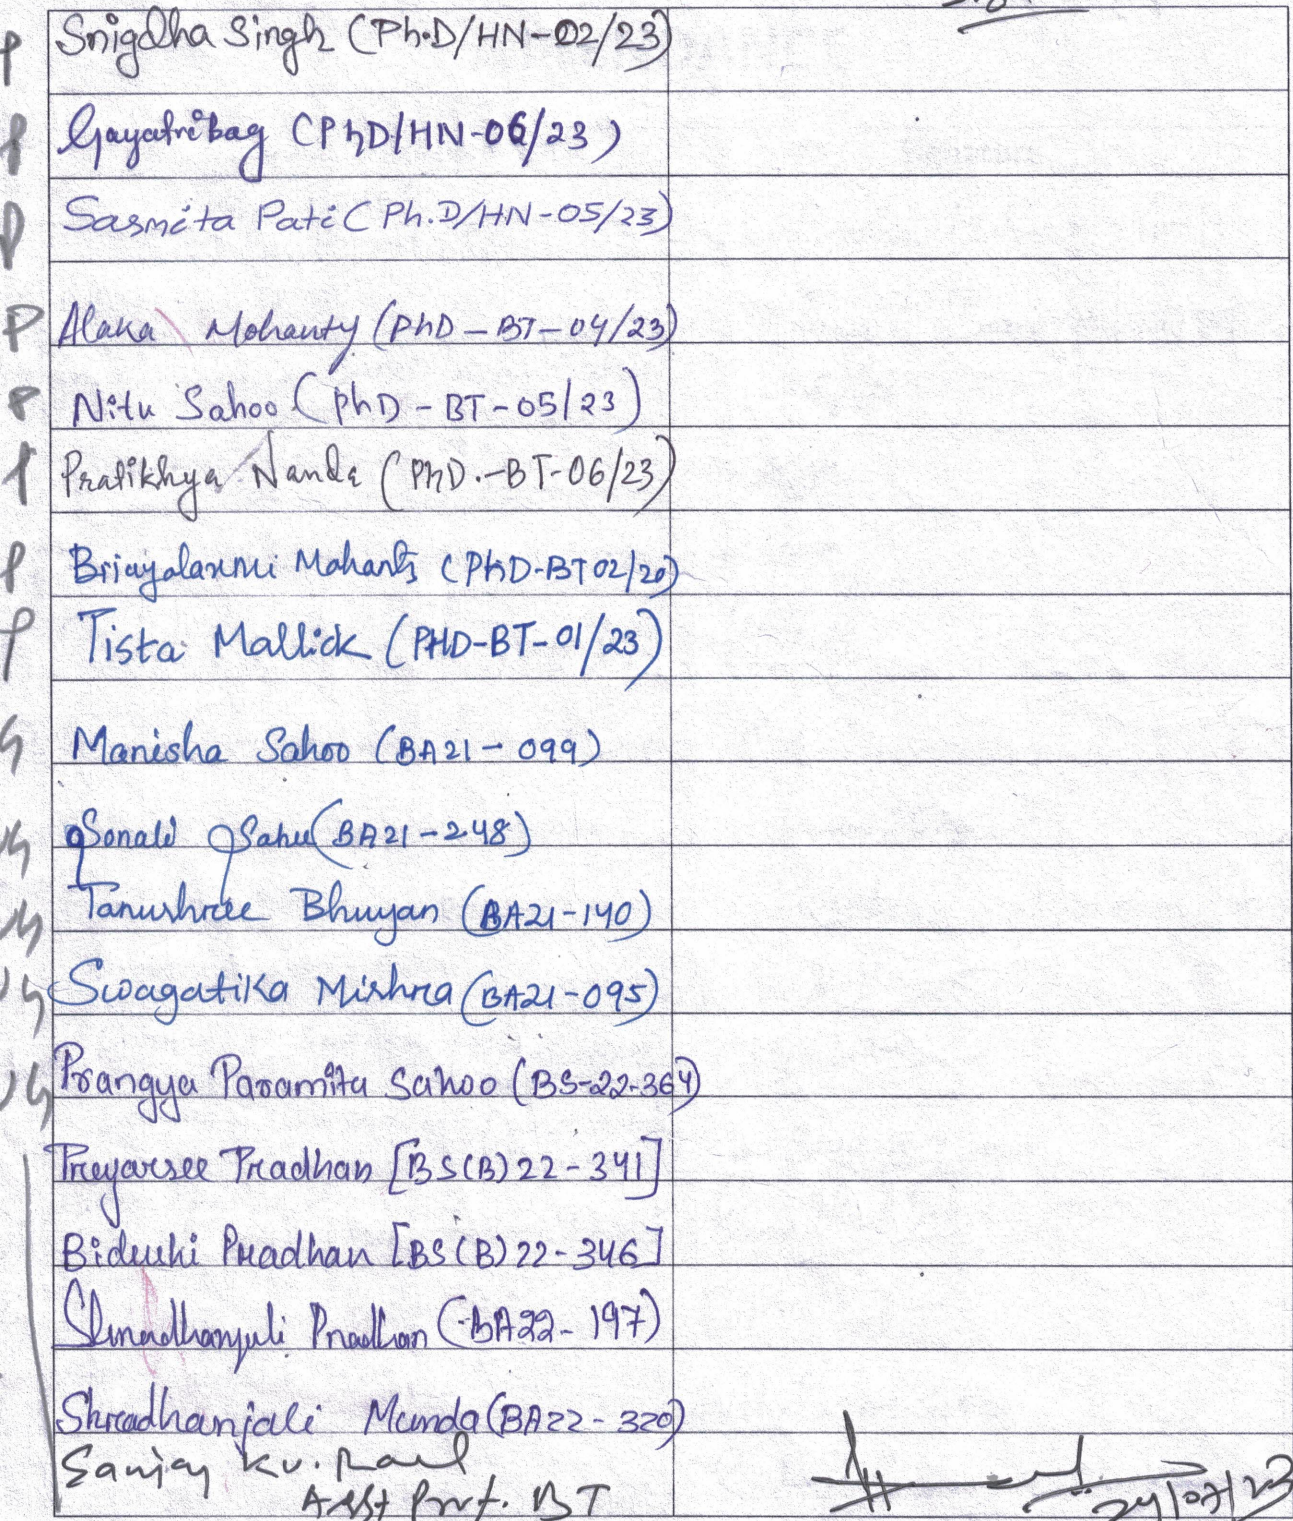 P Snigdha Singh (Ph.D/HN-02/23)
P Gayatri bag (PhD/HN-06/23)
P Sasmita Pati (Ph.D/HN-05/23)
P Alaka Mohanty (PhD-BT-04/23)
P Nitu Sahoo (PhD-BT-05/23)
P Pratikhya Nanda (PhD.-BT-06/23)
P Mohanty (PhD-BT 02/20)
P Tista Mallick (PHD-BT-01/23)
Manisha Sahoo (BA21-099)
Sonali Sahu (BA21-248)
Tanushree Bhuyan (BA21-140)
Swagatika Mishra (BA21-095)
UG Prangya Paramita Sahoo (BS-22-364)
Preyarsee Pradhan [BS(B)22-341]
Pradhan [BS(B)22-346]
Pradhan (BA22-197)
Shradhanjali Munda (BA22-320)
Sanjay Ku. Raul
Asst Prof. BT
24/07/23